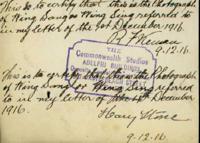 This is to certify that this is the Photograph
of Wing Dong or Wing Sing referred to
in my letter of the 1st December 1916.
9.12.16.
THE
Commonwealth Studios
ADELPHI BUILDINGS
This is to certify that this is the Photograph
of Wing Dong or Wing Sing referred
to in my letter of December
1916.
Harry
9-12-16.